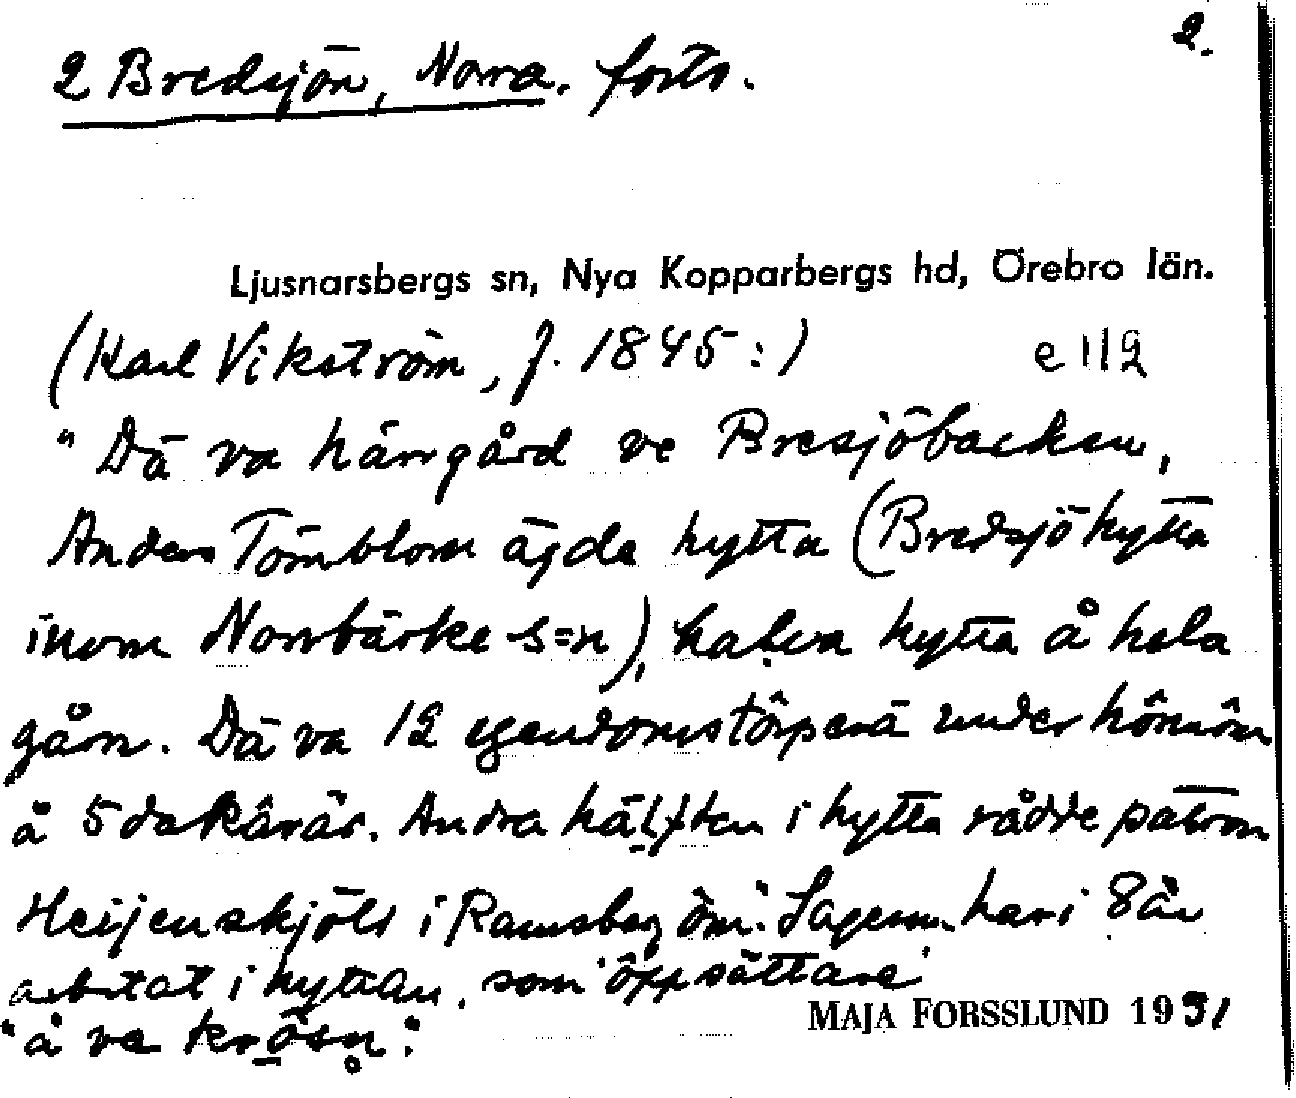 2.
2 Bredsjön, Norra. forts.
Ljusnarsbergs sn, Nya Kopparbergs hd, Örebro län.
(Karl Vikström, f. 1845:) e 112
"Dä va härrgård ve Bresjöbacken,
Anders Törnblom ägde hytta (Bredsjöhytta
inom Norrbärke s=n), halva hytta å hela
gårn. Dä va 12 egendomstôrperä under
å 5 dakârär. Andra hälften i hytta rådde patron
Heijenskjöld i Ramsberg öm". Sagesm. har i 8 år
arbetat i hyttan, som 'öppsättare'
"å ve krösn".
MAJA FORSSLUND 1931